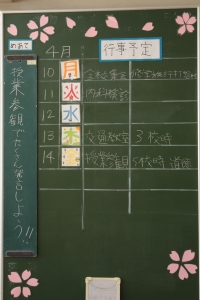 めあて
授業参観でたくさん発言しよう!!
4月
行事予定
10 月
11 火 内科検診
12 水
13 木 交通教室 3校時
14 金 授業参観 5校時 道徳